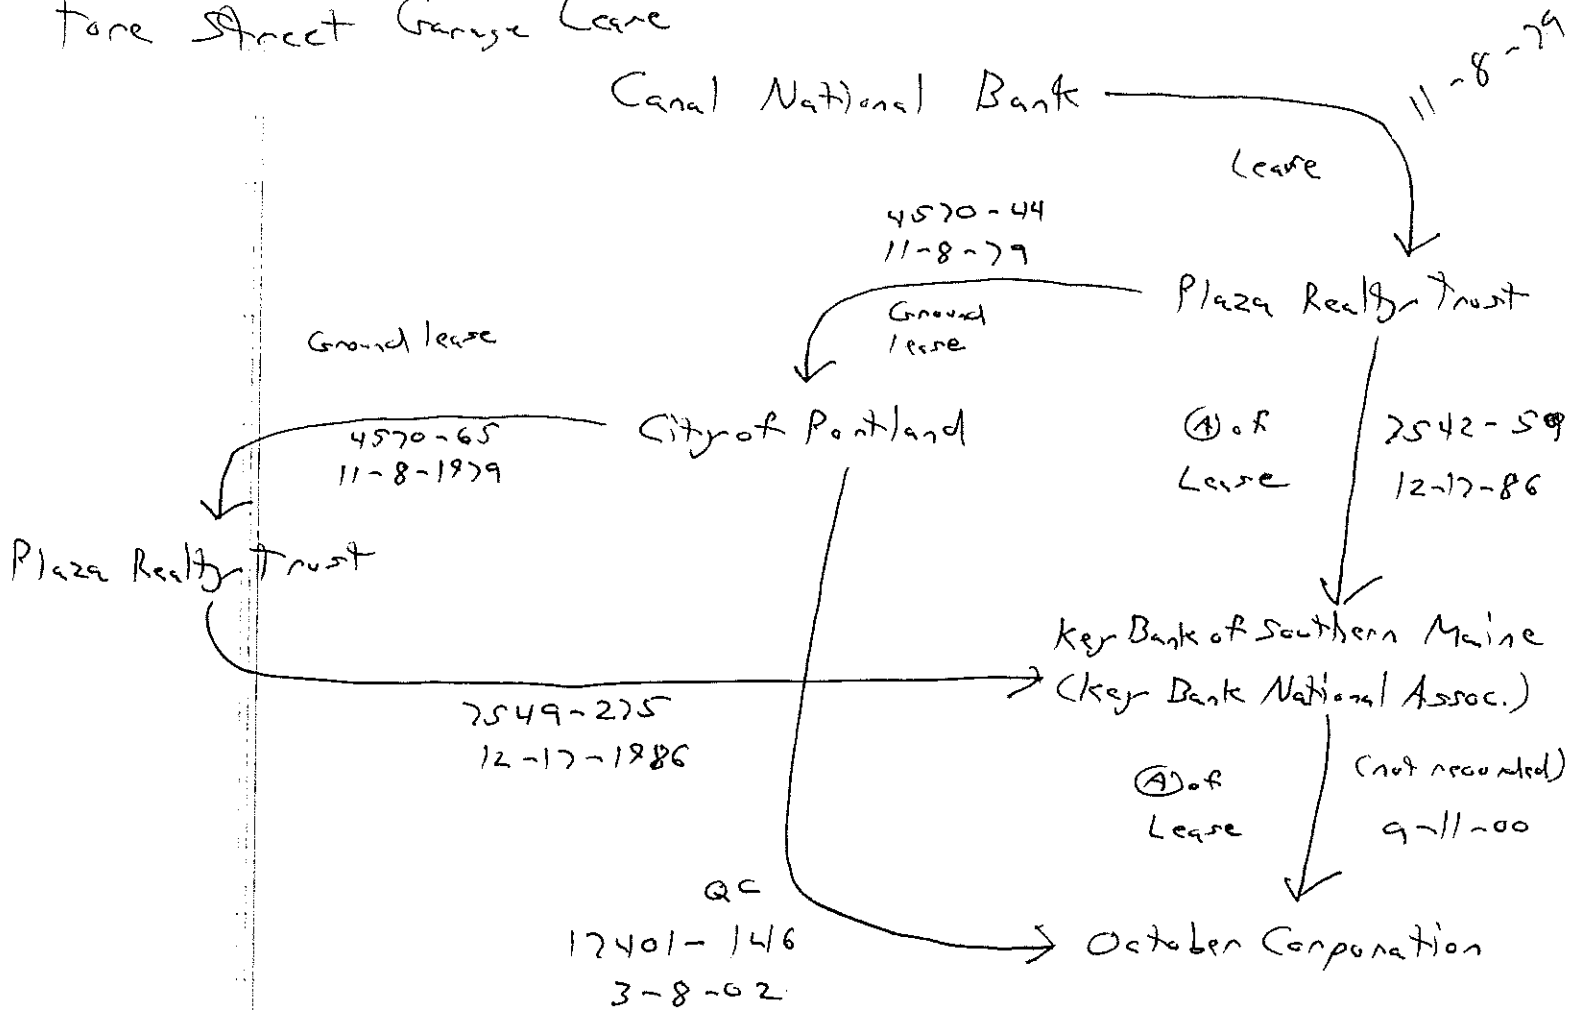 Fore Street Garage Lease
Canal National Bank
11-8-79
Lease
4570-44
11-8-79
Plaza Realty Trust
Ground
lease
Ground lease
City of Portland
4570-65
11-8-1979
Ⓐ of
Lease
7542-59
12-17-86
Plaza Realty Trust
Key Bank of Southern Maine
(Key Bank National Assoc.)
7549-275
12-17-1986
Ⓐ of
Lease
(not recorded)
9-11-00
QC
17401-146
3-8-02
October Corporation